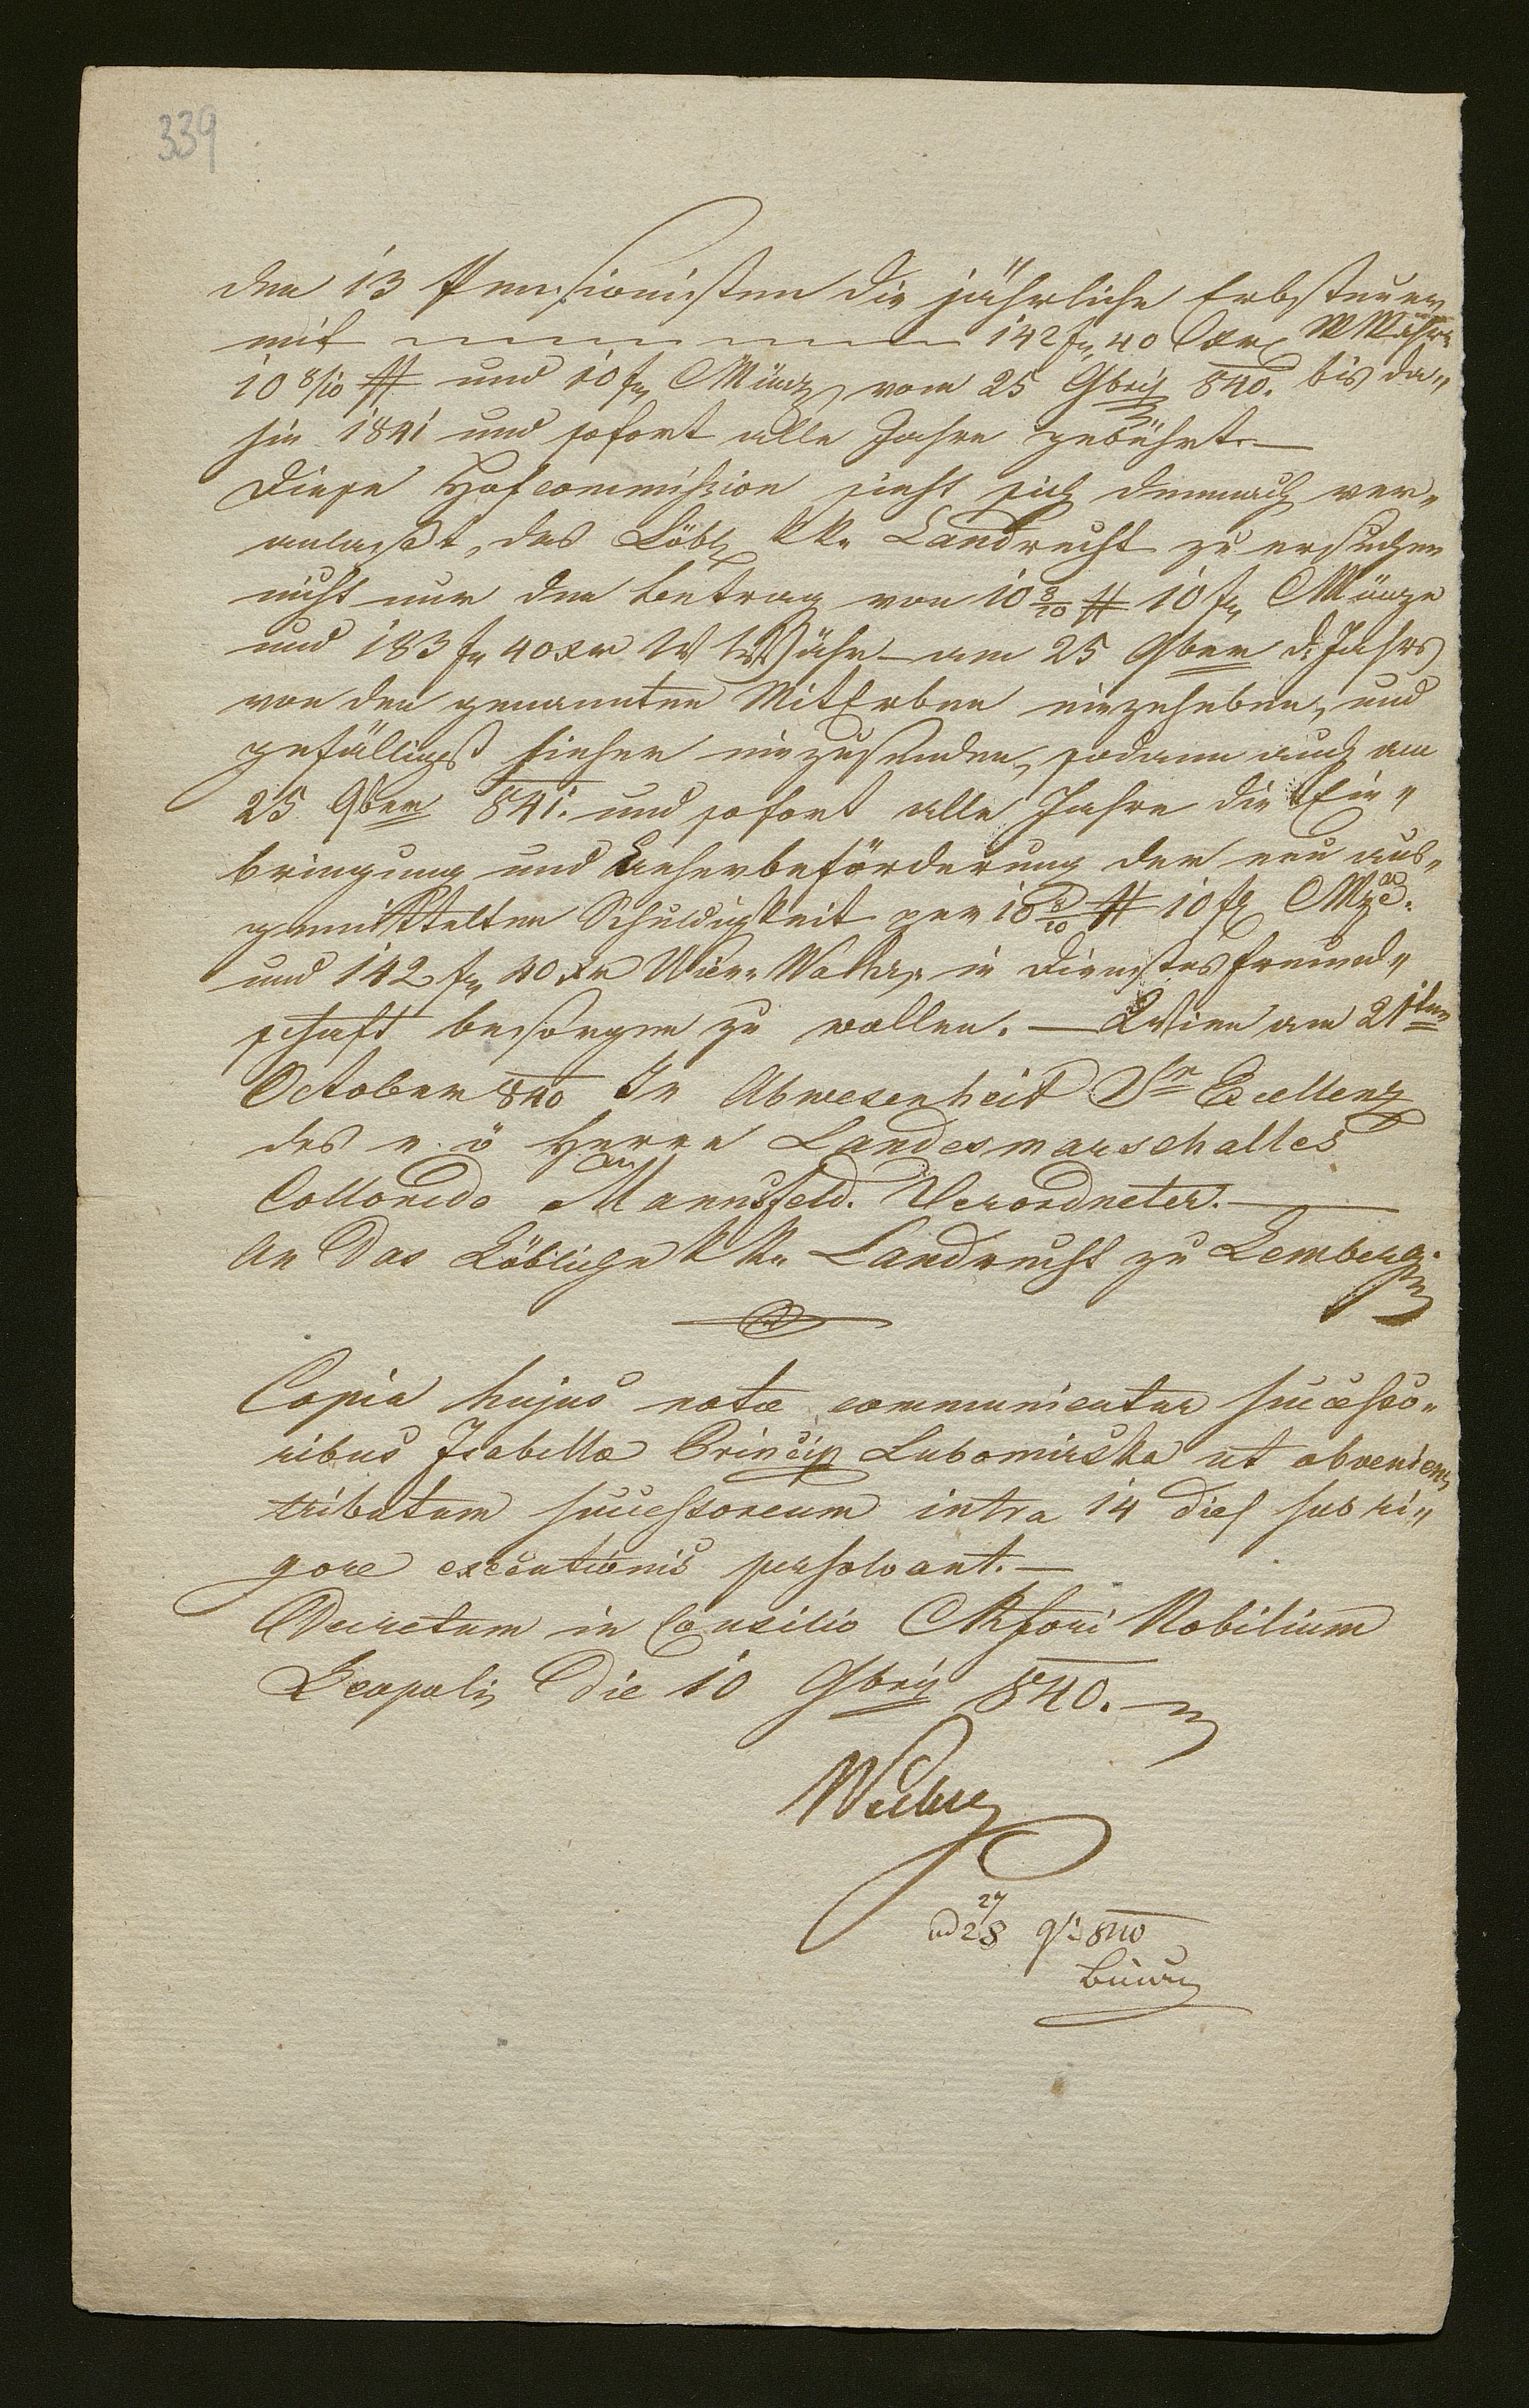 339
den 13 Pensionisten die jährliche Erbsteuer
mit 142 f, 40 Xr WWähr.
10 8/10 # und 10 f, Münz, vom 25 9bris 840. bis da„
hin 1841 und sofort alle Jahre gebührt.—
Diese Hofcommißion sieht sich demnach ver„
anlaßt, das Löbl kk. Landrecht zu ersuchen
nicht nur den Betrag von 10 8/10 # 10 f, Münze
und 183 f, 40 xr W Währ – am 25 9ber d. Jahrs
von den genannten MitErben einzuheben, und
gefälligst hieher einzusenden, sodann auch am
25 9ber 841. und sofort alle Jahre die Ein„
bringung und Anherbeförderung der neu aus„
gemittelten Schuldigkeit per 10 8/10 # 10 f
und 142 f, 40 xr Wien. in Dienstesfreund„
schaft besorgen zu wollen. — Wien am 21ten
October 840 In Abwesenheit Sr Excellenz
des n. ö Herrn Landesmarschalles
Colloredo Mannsfeld. Verordneter.—
An das Löbliche kk. Landrecht zu Lemberg.
Copia hujus notæ communicatur successo„
ribus Isabellæ Princip Lubomirska ut obveniens
tributum successoreum intra 14 dies sub ri„
gore executionis persolvant.—
Decretum in Consilio CR fori Nobilium
Leopolis die 10 9bris 840.
27
ad 28 840